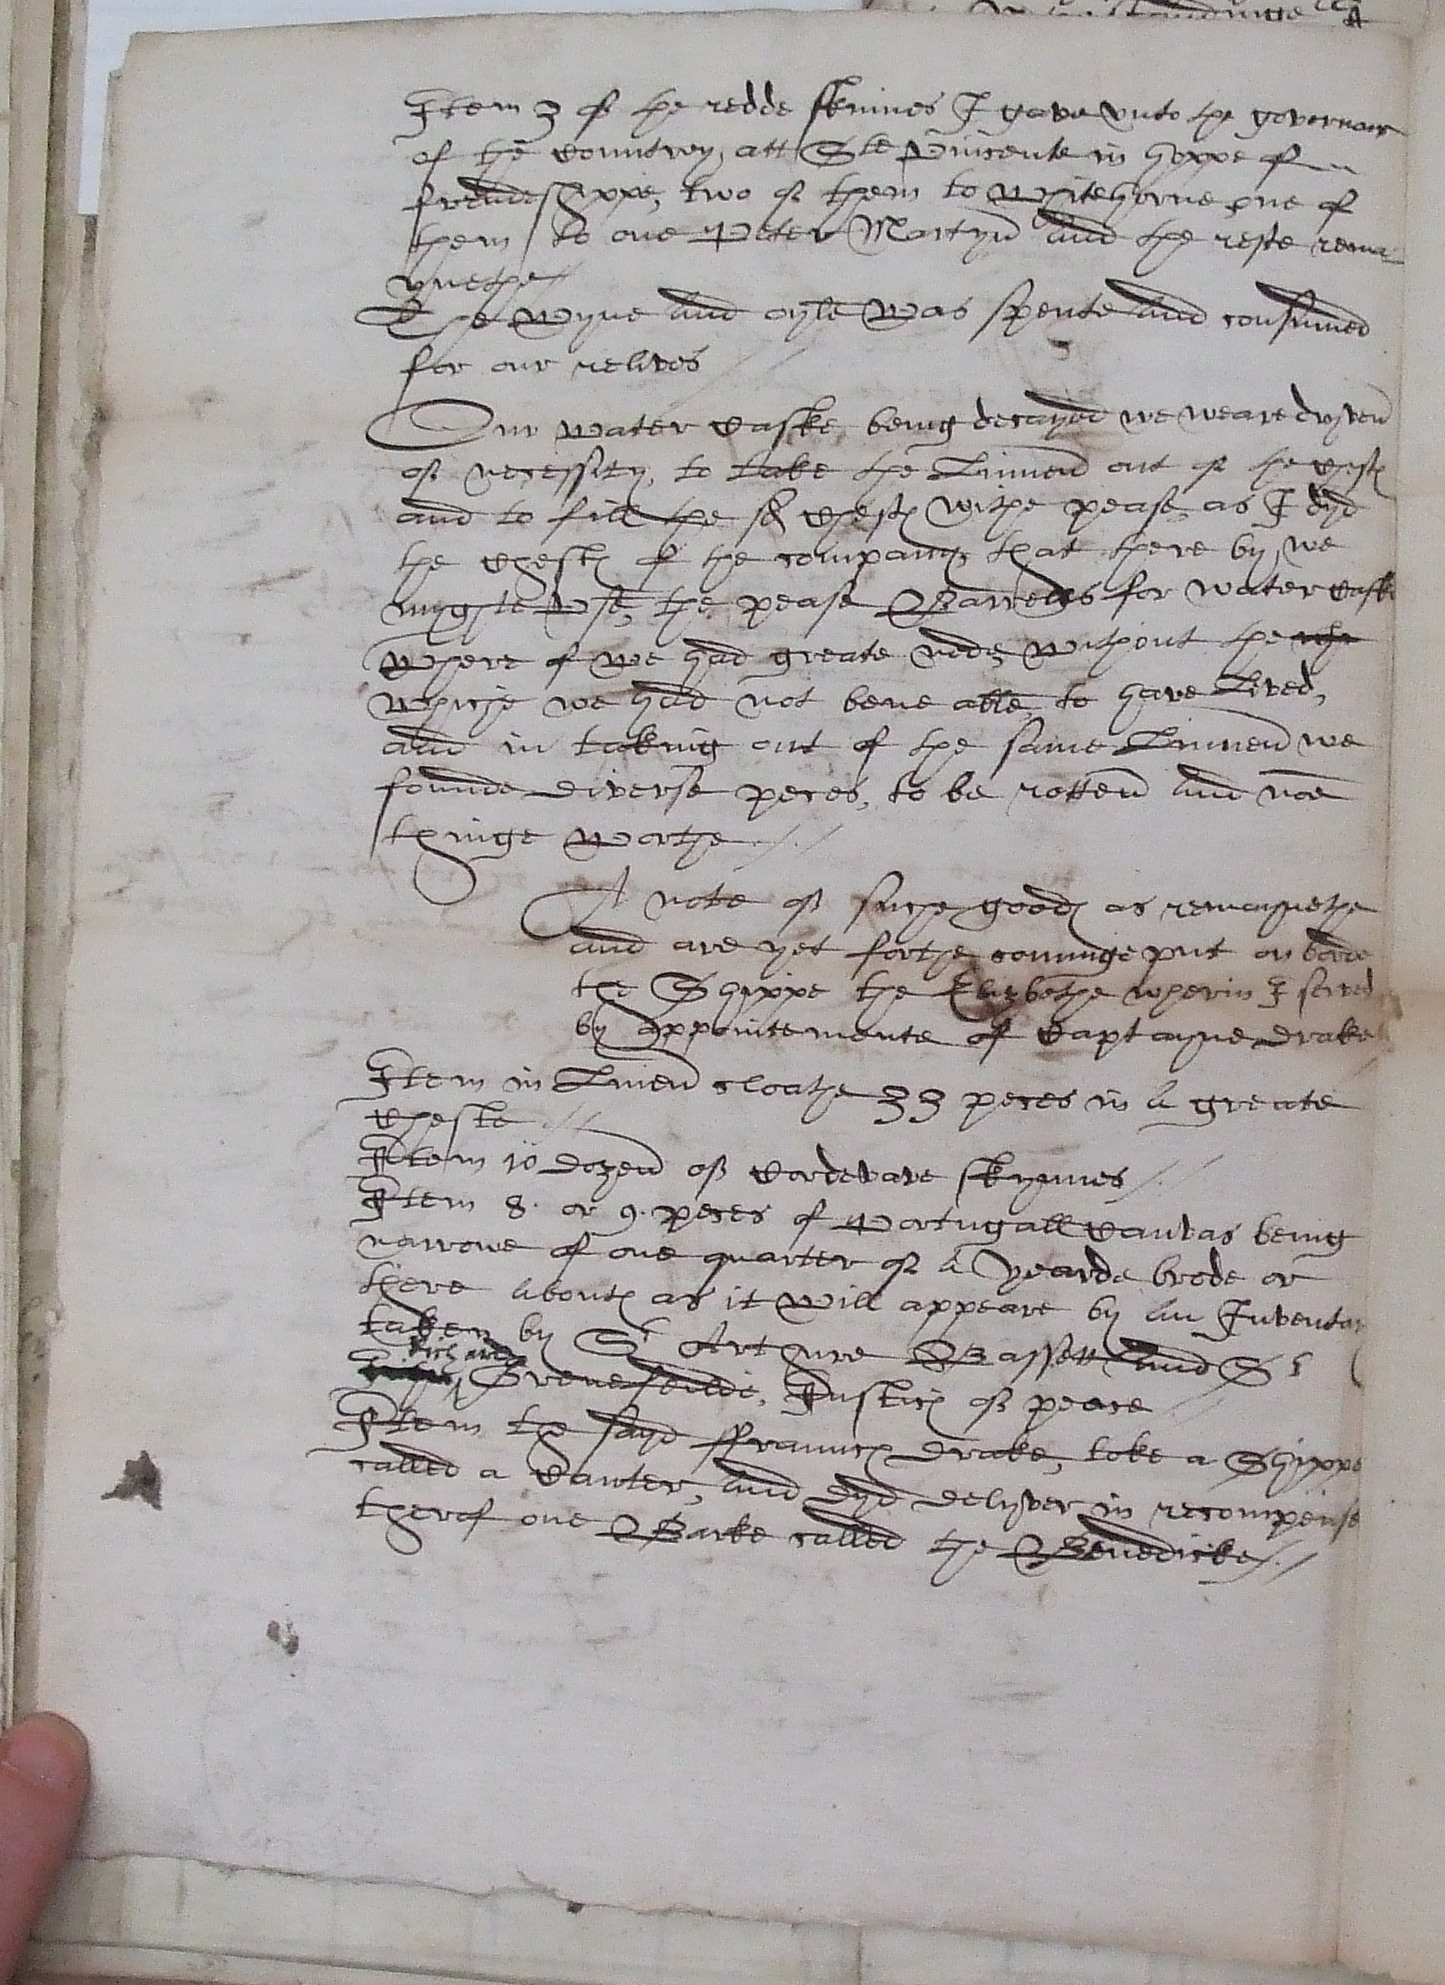 Item 3 of the redde skinnes I gave unto the governour
of the countrey, att Ste Vincente in hoppe of
frendeshippe, two of them to Whitehorne one of
them to one Peter Martyn and the reste rema
ynethe
The Wyne and oyle was spente and consumed
for our releves
Our water caske being decayed we weare dryven
of necessity to take the Linnen out of the chestes
and to fill the sd chestes withe pease as I dyd
the chestes of the company that there by we
myghte use the pease Barrells for water caske
Where of we had greate nede without the
whiche we had not bene able to have Lived,
and in taking out of the same Linnen we
founde diverse peces, to be rotten and noe
thinge worthe
A note of suche goodes as remaynethe
and are yet forthe cominge put on borde
the Shippe the Elizbethe wherin I served
by appointemente of Captayne Drake
Item in Linen cloathe 33 peces in a greate
cheste
Item 10 dozen of Cordevare skynnes
Item 8. or 9. peces of Portugall Canvas being
narrowe of one quarter of a yearde brode or
there aboutes as it will appeare by an Inventar
taken by Sr Arthure Bassett and Sr
Richarde Grenefeilde, Justices of peace
Item the sayd ffraunces Drake, toke a Shippe
called a Canter, and dyd delyver in recompense
therof one Barke called the Benedicke